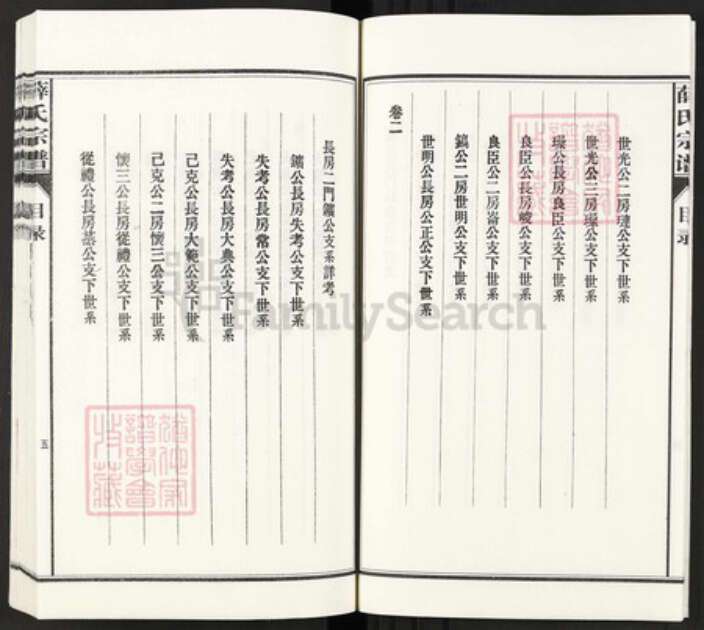 薛氏宗譜
目录
世光公二房璉公支下世系
世光公三房璪公支下世系
璪公長房良臣公支下世系
良臣公長房峻公支下世系
良臣公二房崙公支下世系
鎬公二房世明公支下世系
世明公長房公正公支下世系
卷二
長房二門鑛公支系詳考
鑛公長房失考公支下世系
失考公長房常公支下世系
失考公長房大典公支下世系
己克公長房大範公支下世系
己克公二房懷三公支下世系
懷三公長房從禮公支下世系
從禮公長房公支下世系
薛氏宗譜
目录
五
FamilySearch